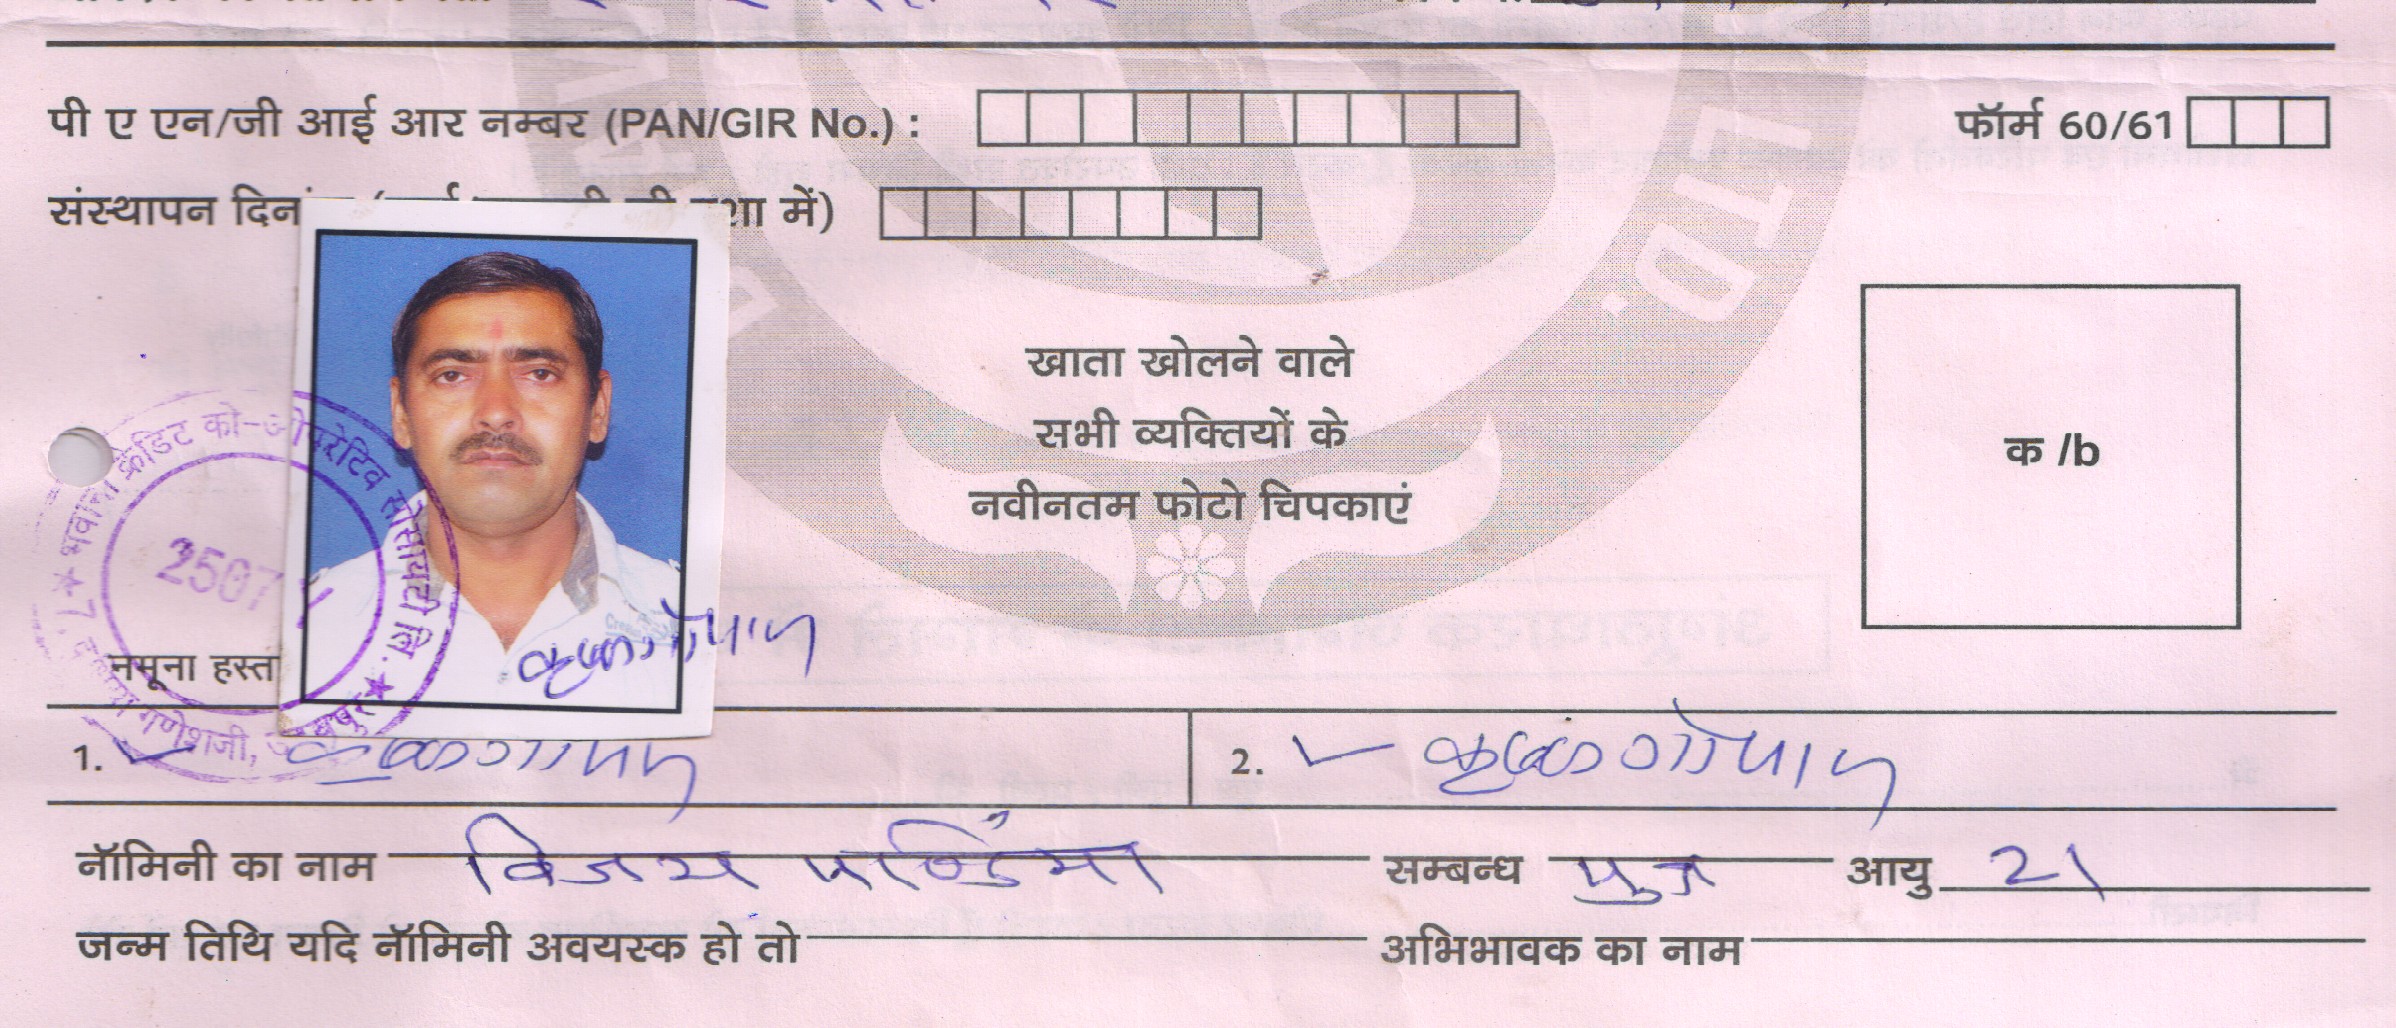 पी ए एन/जी आई आर नम्बर (PAN/GIR No.) :
फॉर्म 60/61
संस्थापन दिनां
में)
खाता खोलने वाले
सभी व्यक्तियों के
नवीनतम फोटो चिपकाएं
क /b
LTD.
भवानी क्रेडिट को-ऑपरेटिव सोसायटी लि.
2507
गणेशजी,
नमूना हस्ता
1.
2.
नॉमिनी का नाम विजय सम्बन्ध पुत्र आयु 21
जन्म तिथि यदि नॉमिनी अवयस्क हो तो अभिभावक का नाम